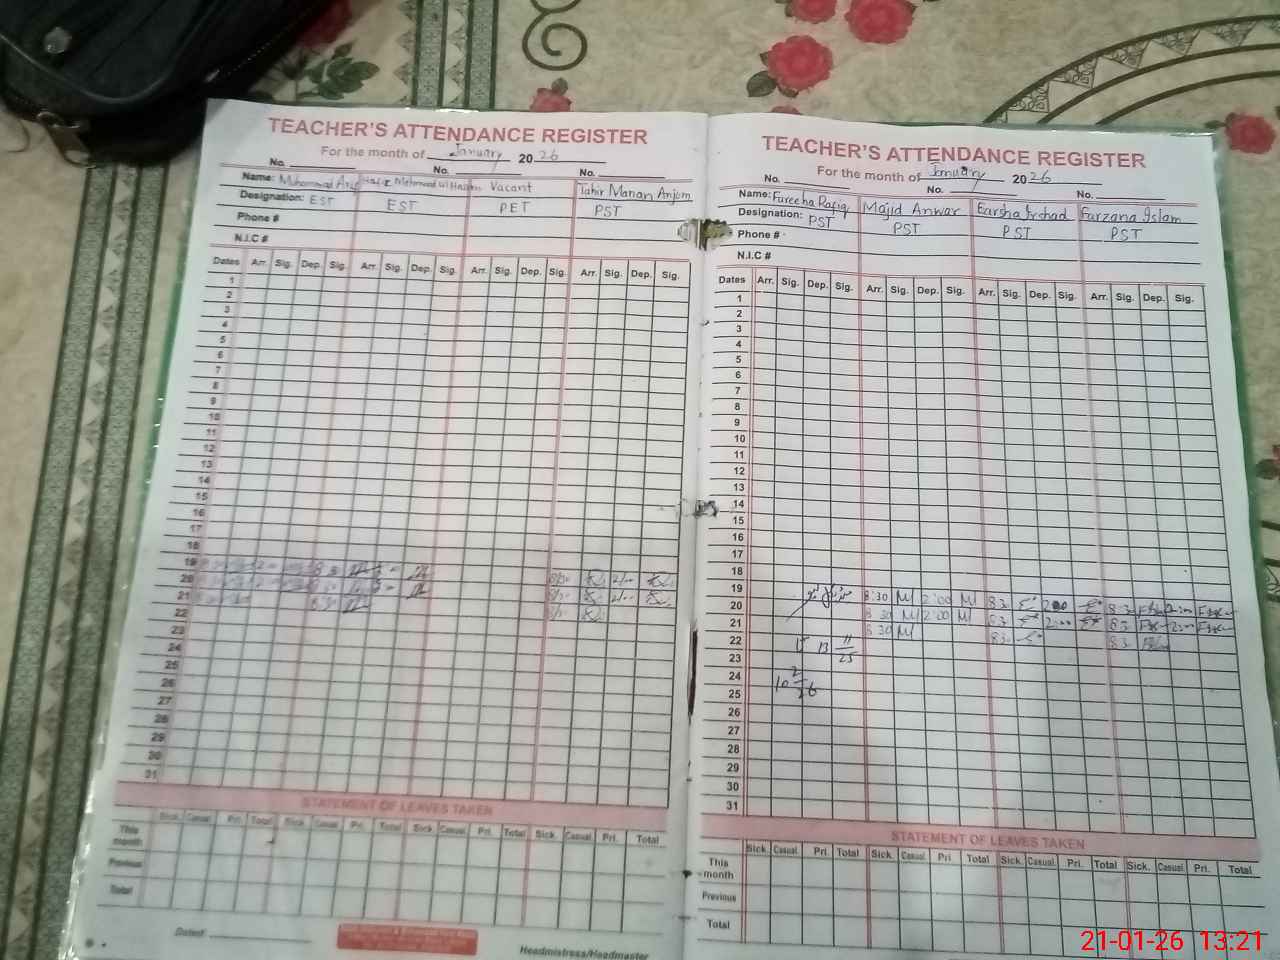 TEACHER'S ATTENDANCE REGISTER
For the month of January 20 26
No. No. No.
Name: Muhammad Hafiz Mehmood ul Hassan Vacant Tahir Manan Anjum
Designation: EST EST PET PST
Phone #
N.I.C #
Dates Arr. Sig. Dep. Sig. Arr. Sig. Dep. Sig. Arr. Sig. Dep. Sig. Arr. Sig. Dep. Sig.
1
2
3
4
5
6
7
8
9
10
11
12
13
14
15
16
17
18
19
20
21
22
23
24
25
26
27
28
29
30
31
STATEMENT OF LEAVES TAKEN
Sick. Casual. Pri. Total Sick. Casual. Pri. Total Sick. Casual. Pri. Total Sick. Casual. Pri. Total
This month
Previous
Total
Dated
Headmistress/Headmaster
TEACHER'S ATTENDANCE REGISTER
For the month of January 2026
No. No. No.
Name: Fareeha Rafiq Majid Anwar Earsha Arshad Farzana Islam
Designation: PST PST PST PST
Phone #
N.I.C #
Dates Arr. Sig. Dep. Sig. Arr. Sig. Dep. Sig. Arr. Sig. Dep. Sig. Arr. Sig. Dep. Sig.
1
2
3
4
5
6
7
8
9
10
11
12
13
14
15
16
17
18
19 8:30 M 2:00 M 83. 200 83.
20 8 30 M 2:00 M 83. 2:00 83.
21 8 30 M 83. 83.
22
23
24
25
26
27
28
29
30
31
STATEMENT OF LEAVES TAKEN
Sick. Casual. Pri. Total Sick. Casual. Pri. Total Sick. Casual. Pri. Total Sick. Casual. Pri. Total
This month
Previous
Total
21-01-26 13:21